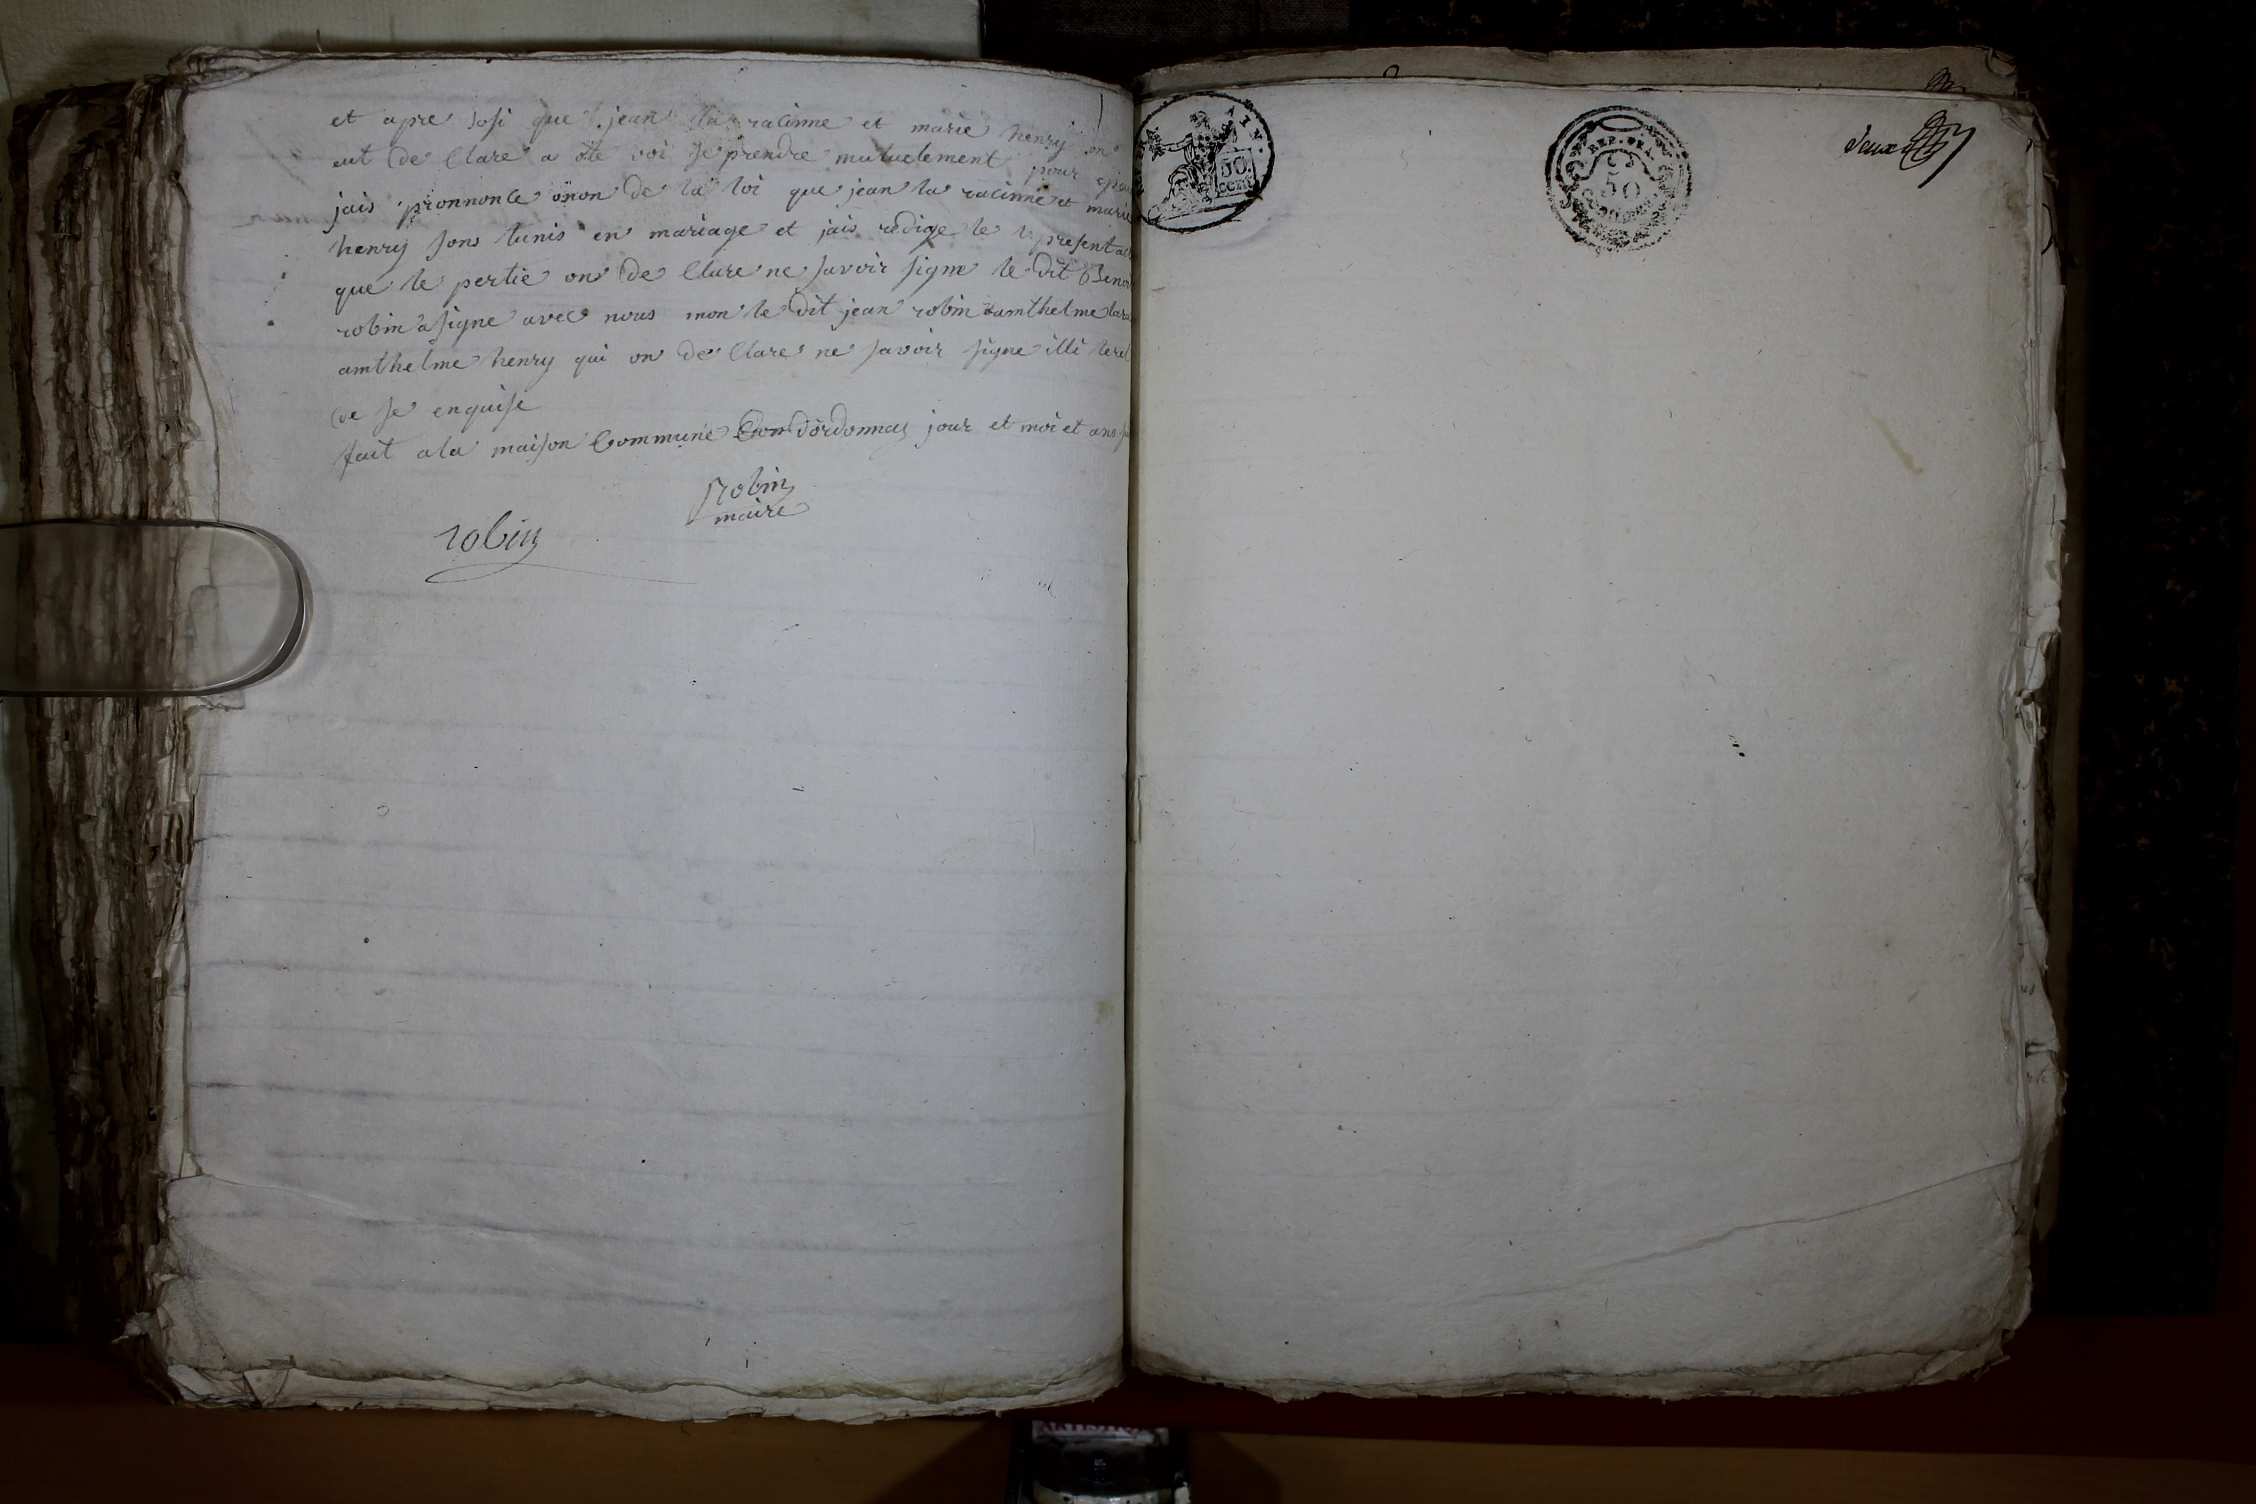 et apre sosi que jean la racinne et marie henry on
eut de Clare a ote voi se prendre mutuelement pour epou
jais pronnonce onon de la loi que jean la racinne et marie
henry sons lunis en mariage et jais redige le present ac
que le pertie on de Clare ne savoir signe le dit Beno
robin a signe avec nous mon le dit jean robin amthelme lara
amthelme henry qui on de Clare ne savoir signe illi terel
de se enquise
fait a la maison Commune Con dordonnas jour et moi et ans
robin
maire
robin
AIN.
50.
cent
REP. FRA.
50
deux